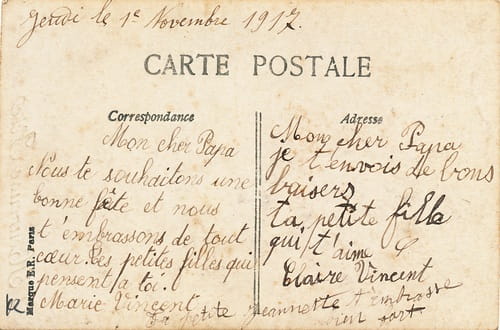 Jeudi le 1e Novembre 1917.
CARTE POSTALE
Correspondance
Mon cher Papa
Nous te souhaitons une
bonne fête et nous
t'embrassons de tout
cœur. Les petites filles qui
pensent a toi.
Marie Vincent
Adresse
Mon cher Papa
je t'envois de bons
baisers
ta petite fille
qui t'aime
Claire Vincent
La petite Jeannette t'embrasse
bien fort
Marque E.R. Paris